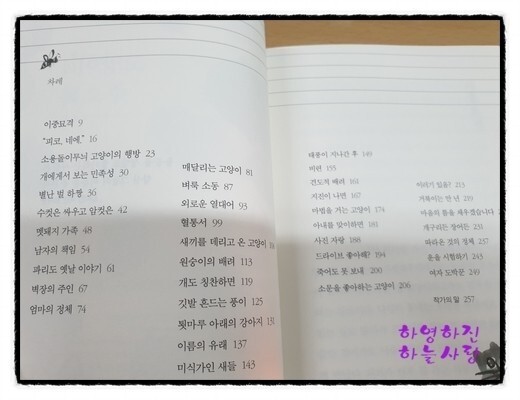 차례
이중묘격 9
"피코, 네에." 16
소용돌이무늬 고양이의 행방 23
개에게서 보는 민족성 30
별난 범 하짱 36
수컷은 싸우고 암컷은 42
멧돼지 가족 48
남자의 책임 54
파리도 옛날 이야기 61
벽장의 주인 67
엄마의 정체 74
매달리는 고양이 81
벼룩 소동 87
외로운 열대어 93
혈통서 99
새끼를 데리고 온 고양이
원숭이의 배려 113
개도 칭찬하면 119
깃발 흔드는 풍이 125
툇마루 아래의 강아지 131
이름의 유래 137
미식가인 새들 143
태풍이 지나간 후 149
미련 155
견도적 배려 161
지진이 나면 167
마법을 거는 고양이 174
아내를 맞이하면 181
사진 자랑 188
드라이브 좋아해? 194
죽어도 못 보내 200
소문을 좋아하는 고양이 206
이러기 있음? 213
거북이는 만 년 219
마음의 틈을 채우겠습니다
개구리든 장어든 231
따라온 것의 정체 237
운을 시험하기
여자 도박꾼 249
작가의 말 257
하영하진
하늘사랑